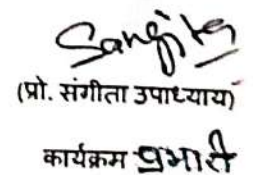 Sangita
(प्रो. संगीता उपाध्याय)
कार्यक्रम प्रभारी